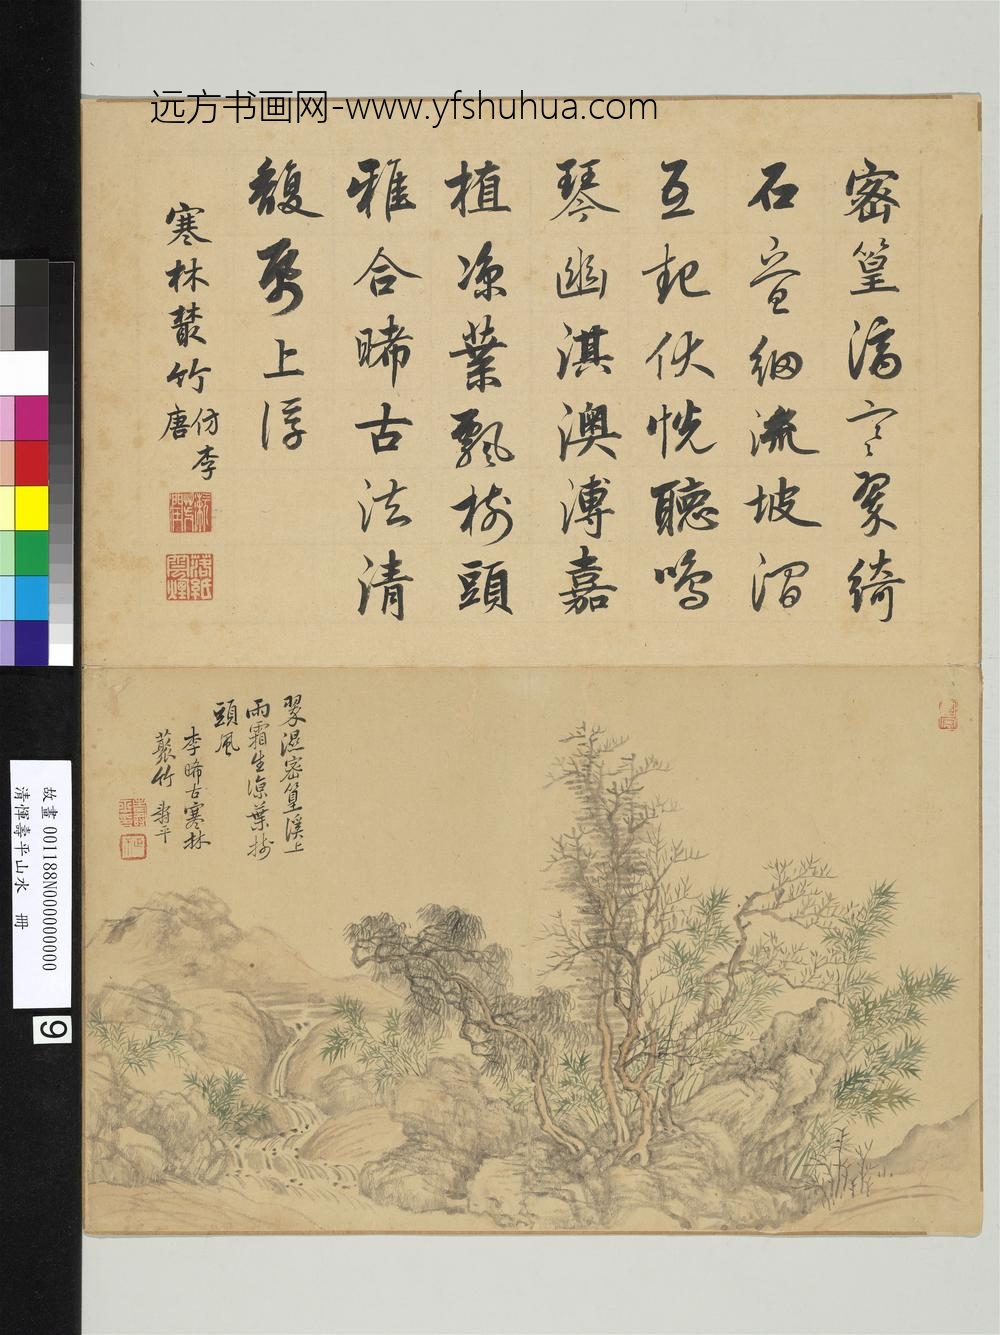 远方书画网-www.yfshuhua.com
密篁濡寒翠綺
石疊細流坡沼
互起伏恍聽鳴
琴幽淇澳溥嘉
植涼葉飄樹頭
雅合晞古法清
馥紙上浮
寒林叢竹仿李
唐
翠濕密篁溪上
雨霜生涼葉樹
頭風
李晞古寒林
叢竹 壽平
故畫 001188N000000000
清惲壽平山水 冊
9